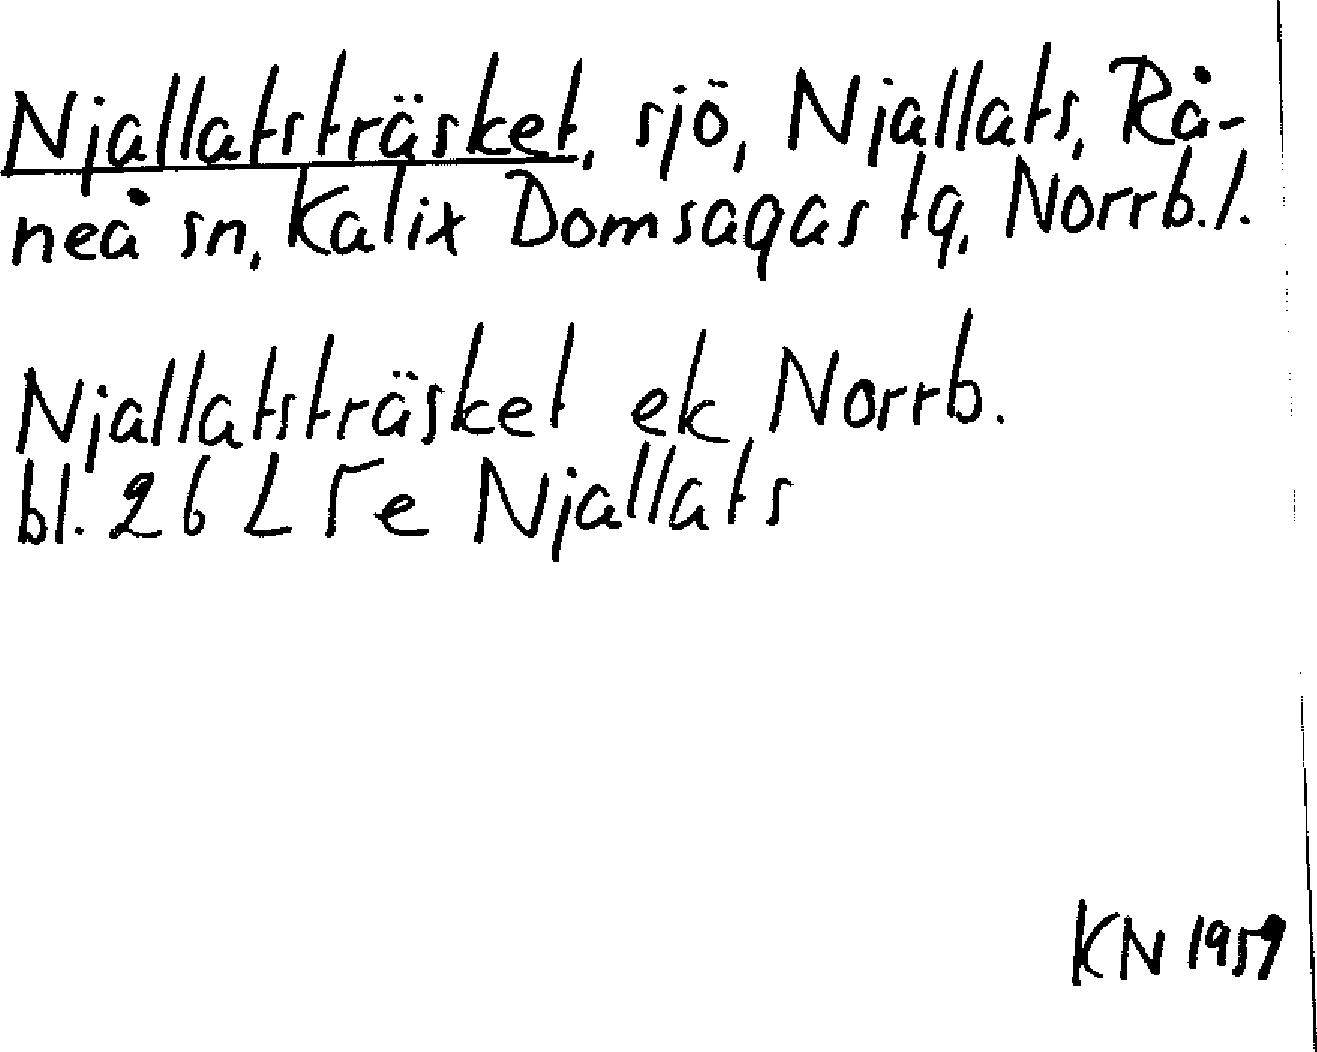 Njallatsträsket, sjö, Njallats, Rå-
neå sn, Kalix Domsagas tg, Norrb.l.
Njallatsträsket ek Norrb.
bl. 26 L 5e Njallats
KN 1959